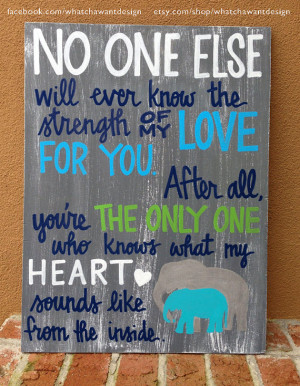 facebook.com/whatchawantdesign etsy.com/shop/whatchawantdesign
NO ONE ELSE
will ever know the
strength OF MY LOVE
FOR YOU.
After all,
you're THE ONLY ONE
who knows what my
HEART
sounds like
from the inside.